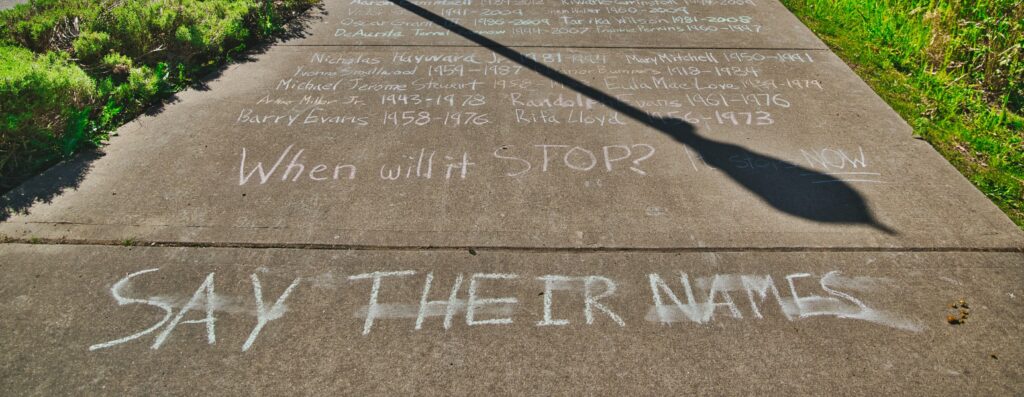 Oscar Grant 1986-2009 Tarika Wilson 1981-2008
DeAunta Terrel Farrow 1994-2007
Nicholas Hayward Jr. 1981-1994 Mary Mitchell 1950-1991
Yvonne Smallwood 1959-1987 Eleanor Bumpers 1918-1984
Michael Jerome Stewart 1958-1983 Eula Mae Love 1939-1979
Arthur Miller Jr. 1943-1978 Randolph Evans 1961-1976
Barry Evans 1958-1976 Rita Lloyd 1956-1973
When will it STOP? It stops NOW
SAY THEIR NAMES